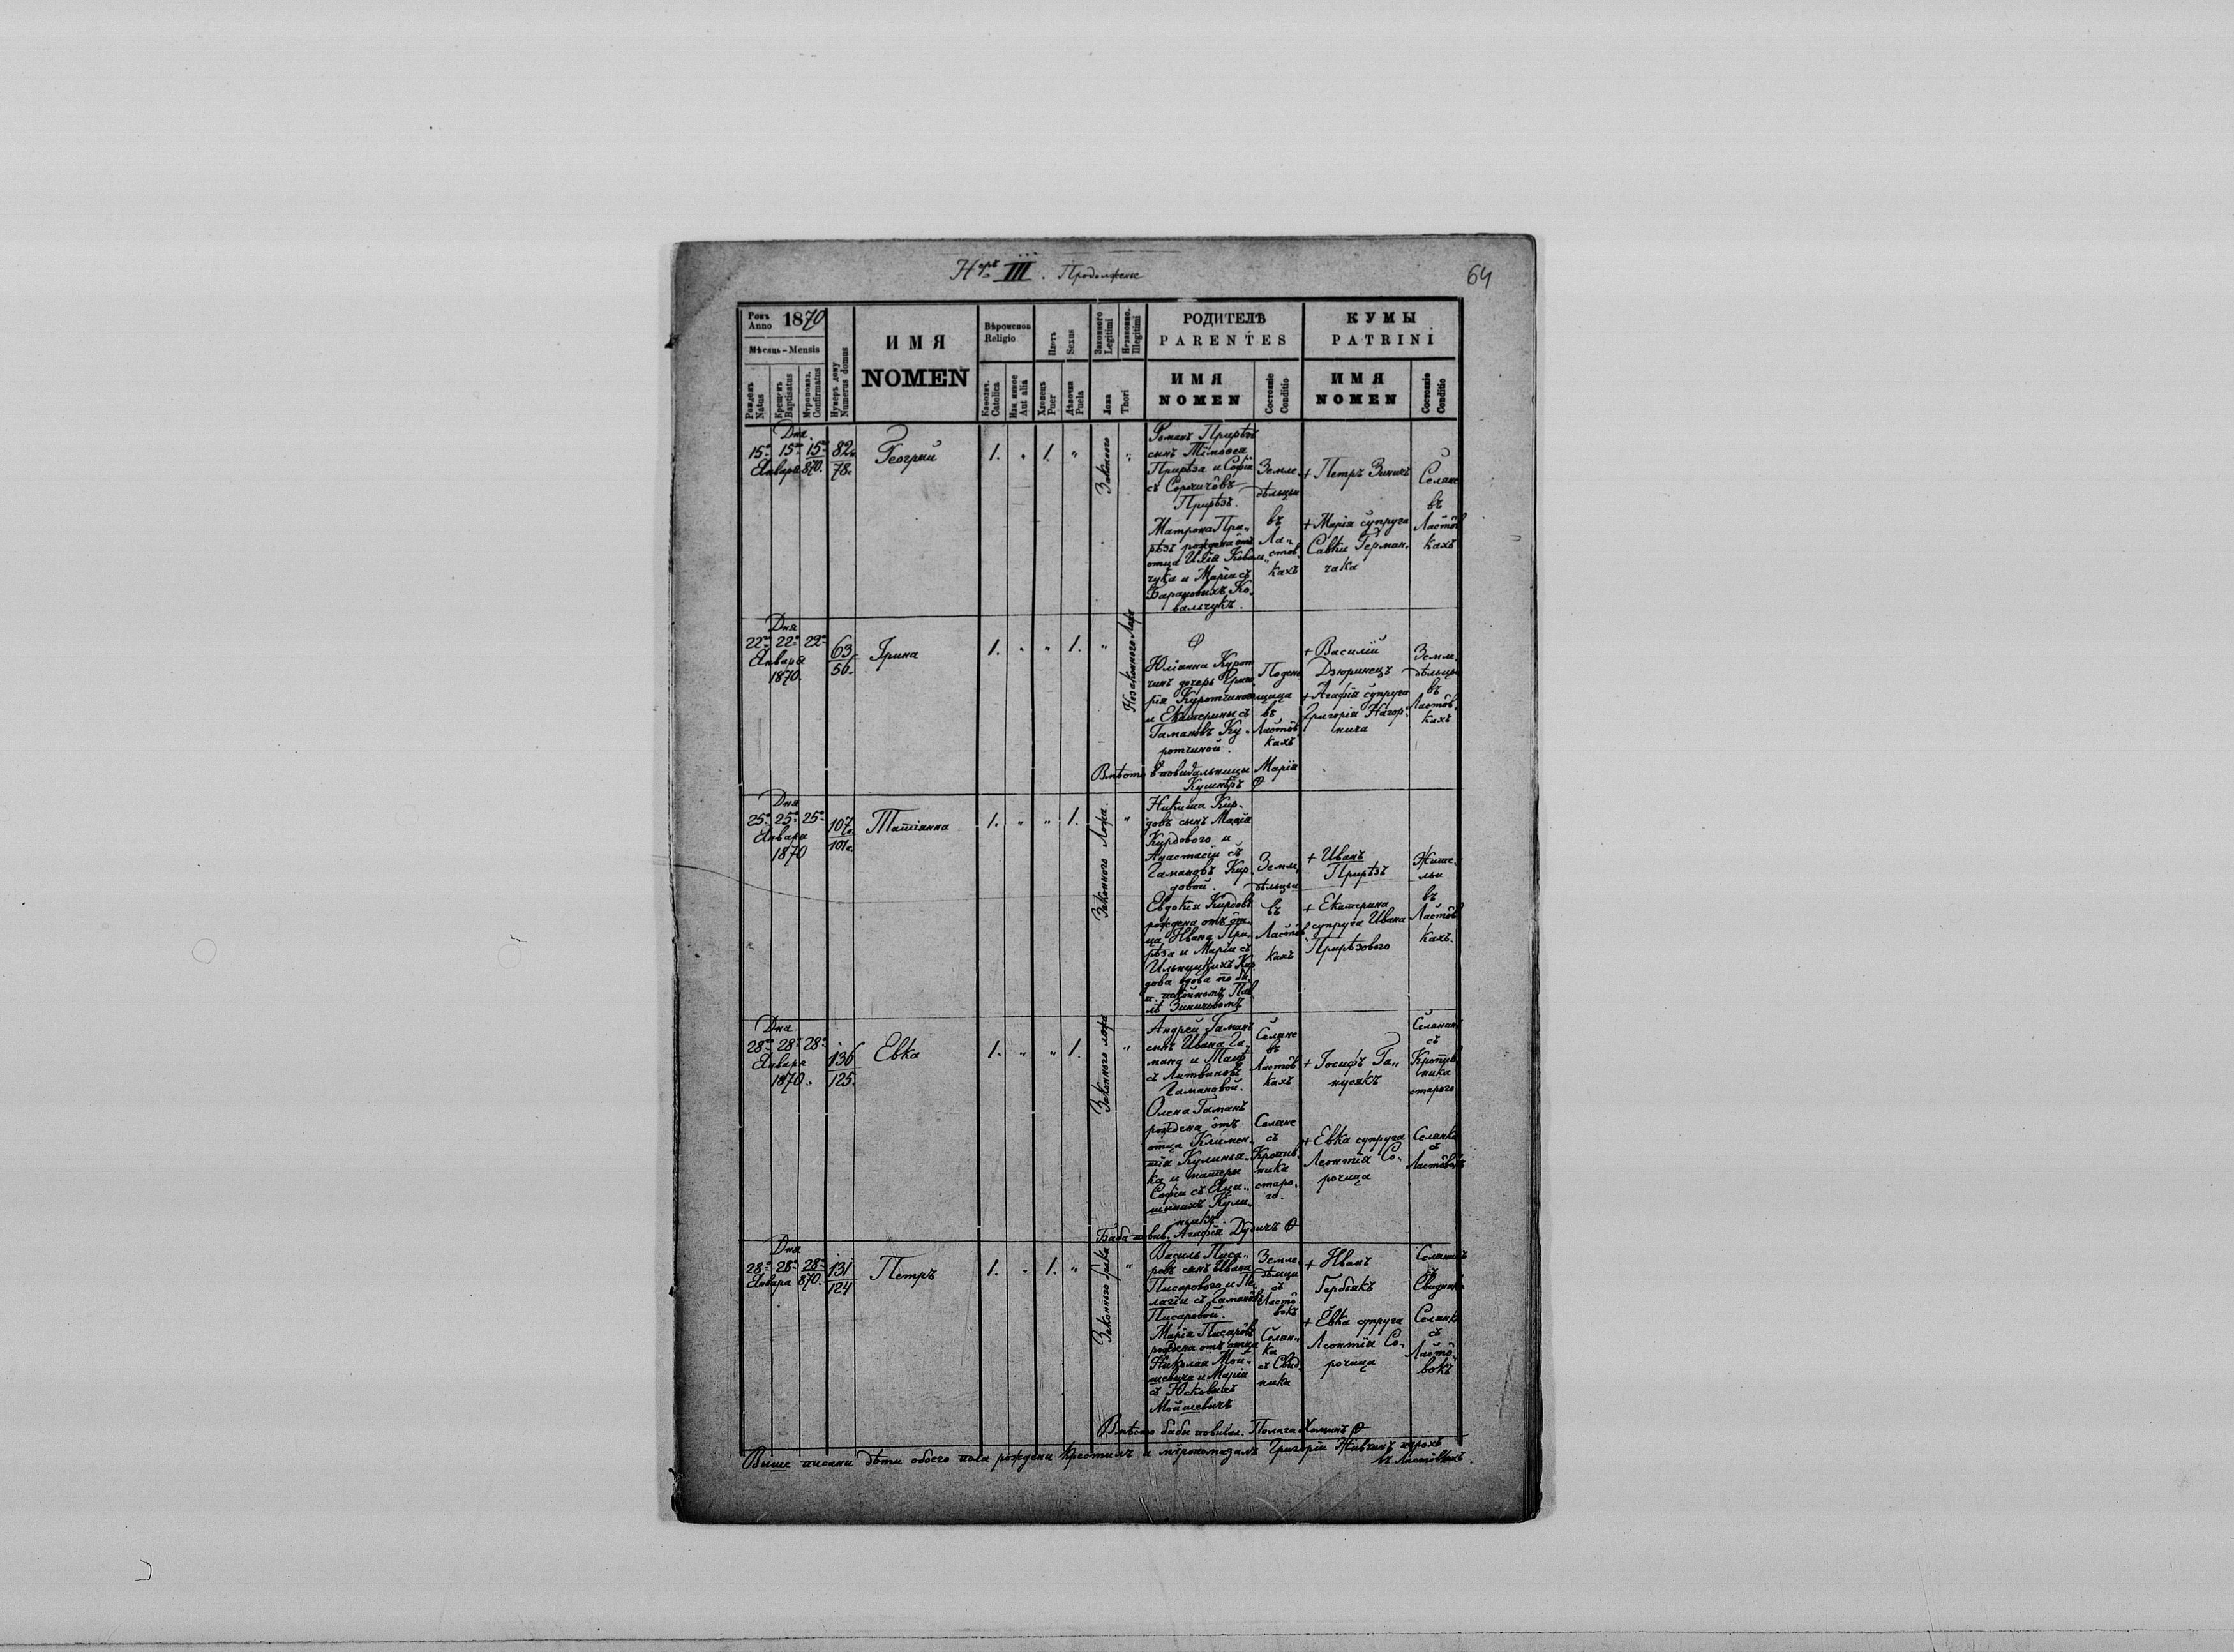 Нръ III. Продолженіе
64
Рокъ Anno 1870
Мѣсяць – Mensis
Рожденъ Natus
Крещенъ Baptisatus
Муропомаз. Confirmatus
Нумеръ дому Numerus domus
ИМЯ
NOMEN
Вѣроисповѣ Religio
Каѳолич. Catolica
Или инное Aut alia
Плоть Sexus
Хлопець Puer
Дѣвочка Puela
Законного Legitimi
Незаконно. Illegitimi
Ложа Thori
РОДИТЕЛѢ
PARENTES
ИМЯ
NOMEN
Состояніе Conditio
КУМЫ
PATRINI
ИМЯ
NOMEN
Состояніе Conditio
Дня
15го 15го 15го
Января 870.
82.
78.
Георгий
1. " 1. "
Законного
"
Романъ Прирѣзъ
сынъ Тімоѳея
Прирѣза и Софіи
съ Сорочичôвъ
Прирѣзъ.
Матрона При„
рѣзъ рождена отъ
отца Илія Коваль„
чука и Маріи съ
Барановихъ Ко„
вальчукъ.
Земле„
дѣльцы
въ
Ла„
стôв„
кахъ
+ Петръ Зиничъ
+ Марія супруга
Савки Герман„
чака
Селяне
въ
Ластôв
кахъ
Дня
22го 22го 22го
Января
1870.
63
56.
Ірина
1. " " 1. "
Незаконного Ложа
Юліанна Курот
чинъ дочерь Григо
рія Куротчина
и Екатерины съ
Гамановъ Ку„
ротчиной.
Поден
щица
въ
Ластôв
кахъ
+ Василій
Дзюринецъ
+ Агафія супруга
Григорія Нагор„
нича
Земле„
дѣльцы
въ
Ластôв„
кахъ
Вмѣсто повидальницы Марія
Кушнѣръ
Дня
25го 25го 25го
Января
1870
107.
101.
Татіанна
1. " " 1.
Законного Ложа.
"
Никита Кир„
довъ сынъ
Курдового и
Анастасіи съ
Гамановъ Кир
довой.
Евдокія Кирдовъ
рождена отъ от„
ца Ивана При„
рѣза и Маріи съ
Ильницкихъ Кир
дова вдова по
покойномъ Пав
лѣ Зиничовомъ
Земле„
дѣльцы
въ
Ластôв
кахъ
+ Иванъ
Прирѣзъ
+ Екатерина
супруга Ивана
Прирѣзового
Жите„
льи
въ
Ластôв
кахъ.
Дня
28го 28го 28го
Января
1870.
136
125.
Евка
1. " " 1.
Законного ложа
"
Андрей Гаманъ
сынъ Ивана Га
мана и
съ Литвиновъ
Гамановой.
Олена Гаманъ
рождена отъ
отца Климен„
тія Кулиня„
ка и матери
Софіи съ
Кули„
някъ.
Селяне
въ
Ластôв
кахъ
Селяне
съ
Кропив„
ника
старо„
го.
+ Іосифъ Га„
нусякъ
+ Евка супруга
Леонтія Со„
рочица
Селянинъ
съ
Кропив
ника
старого
Селянка
съ
Ластôвокъ
Баба повив. Агафія Дудичъ
Дня
28го 28го 28го
Января 870.
131
124
Петръ
1. " 1. "
Законного ложа
"
Василь Писа„
ровъ сынъ Ивана
Писарового и Пе„
лагіи съ Гамановъ
Писаровой.
Марія Писарôвъ
рождена отъ отца
Николая Мой„
шевича и Маріи
съ Юсковихъ
Мойшевичъ
Земле„
дѣльци
съ
Ластô„
вокъ
Селян„
ка
съ Свид
ника
+ Иванъ
Гербякъ
+ Евка супруга
Леонтія Со„
рочица
Селянинъ
съ
Свидника
Селянка
съ
Ластô„
вокъ
Вмѣсто бабы повивал. Полага Хоминъ
Выше писани дѣти обоего пола рождени крестилъ и мѵропомазалъ Григорій Живчинъ парохъ
въ Ластôвкахъ.